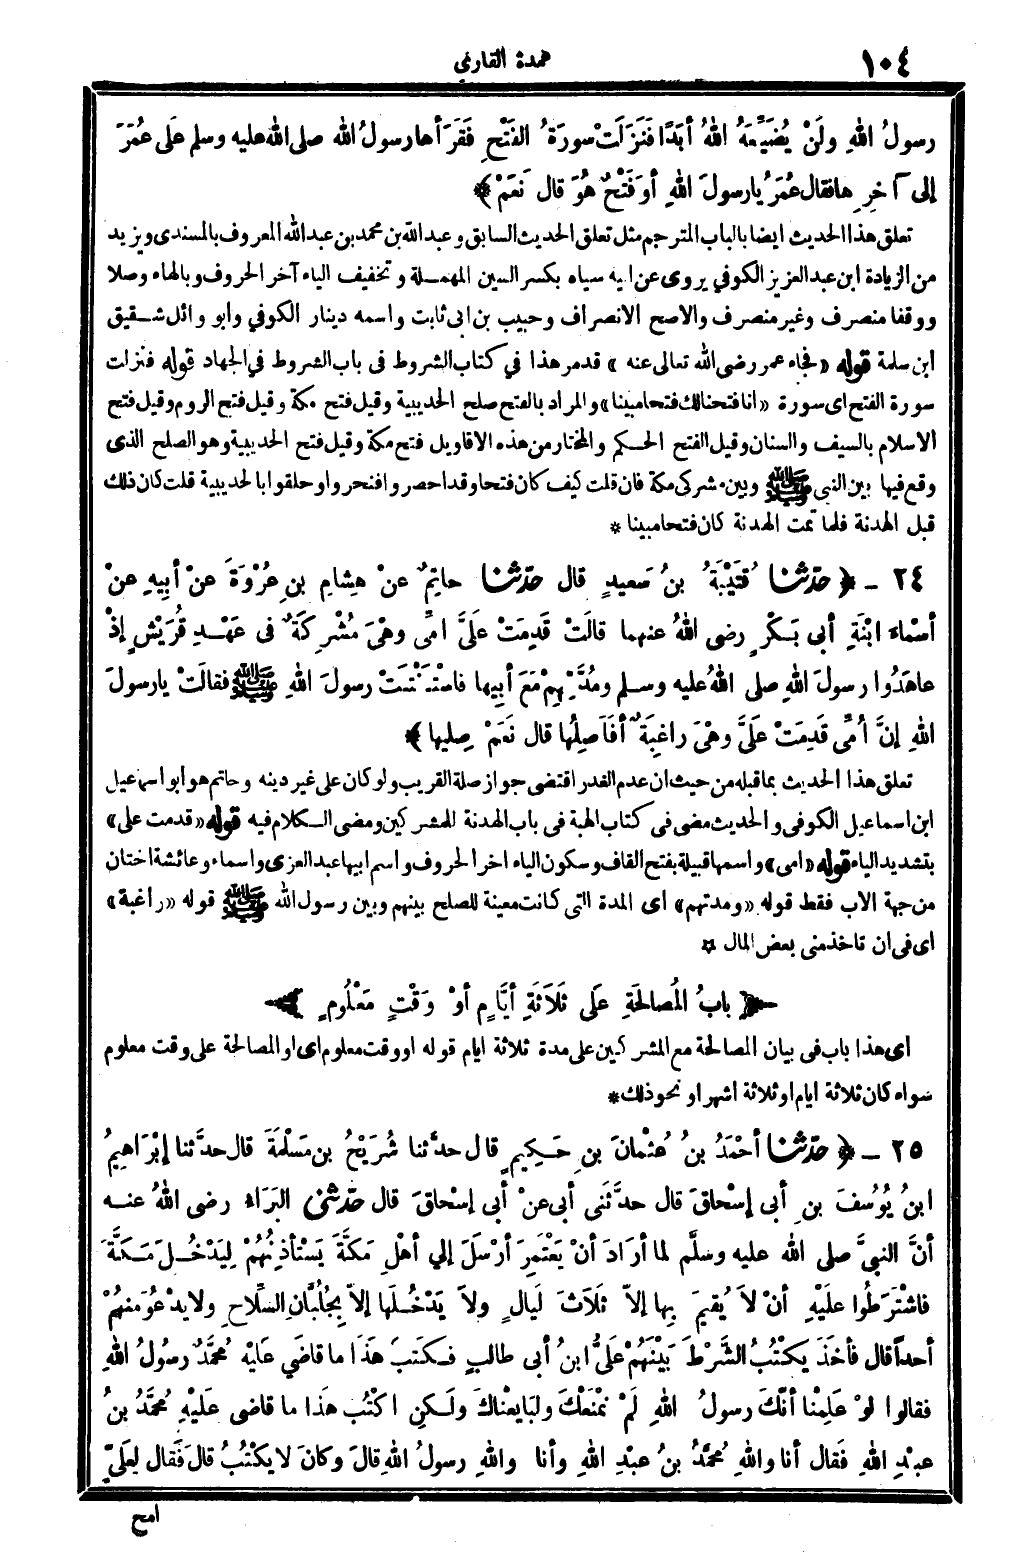 ١٠٤
عمدة القارئ
رسولُ اللهِ ولَنْ يُضَيِّعَهُ اللهُ أبَدًا فَنَزَلَتْ سورَةُ الفَتْحِ فَقَرَأها رسولُ الله صلى الله عليه وسلم عَلَى عُمَرَ
إلى آخِرِها فقال عُمَرُ يا رسولَ اللهِ أوَ فَتْحٌ هُوَ قال نَعَمْ ﴾
تعلق هذا الحديث ايضا بالباب المترجم مثل تعلق الحديث السابق وعبد الله بن محمد بن عبد الله المعروف بالمسندى ويزيد
من الزيادة ابن عبد العزيز الكوفي يروى عن ابيه سياه بكسر السين المهملة وتخفيف الياء آخر الحروف وبالهاء وصلا
ووقفا منصرف وغير منصرف والاصح الانصراف وحبيب بن ابى ثابت واسمه دينار الكوفي وابو وائل شقيق
ابن سلمة قوله «فجاء عمر رضى الله تعالى عنه» قدمر هذا في كتاب الشروط فى باب الشروط في الجهاد قوله فنزلت
سورة الفتح اى سورة «انا فتحنا لك فتحا مبينا» والمراد بالفتح صلح الحديبية وقيل فتح مكة وقيل فتح الروم وقيل فتح
الاسلام بالسيف والسنان وقيل الفتح الحكم والمختار من هذه الاقاويل فتح مكة وقيل فتح الحديبية وهو الصلح الذى
وقع فيها بين النبى ﷺ وبين مشركى مكة فان قلت كيف كان فتحا وقد احصروا فنحروا وحلقوا بالحديبية قلت كان ذلك
قبل الهدنة فلما تمت الهدنة كان فتحا مبينا *
٢٤ - ﴿ حدّثنا قُتَيْبَةُ بنُ سَعيدٍ قال حدّثنا حاتِمٌ عنْ هِشامِ بنِ عُرْوَةَ عنْ أبيهِ عنْ
أسْماءَ ابْنَةِ أبى بَكْرٍ رضى اللهُ عنهما قالَتْ قَدِمَتْ عَلَىَّ امِّى وهْىَ مُشْرِكَةٌ فى عَهْدِ قُرَيْشٍ إذْ
عاهَدُوا رسولَ اللهِ صلى اللهُ عليه وسلم ومُدَّتِهِمْ مَعَ أبيها فاسْتَفْتَتْ رسولَ اللهِ ﷺ فقالَتْ يا رسولَ
اللهِ إنَّ أُمِّى قَدِمَتْ عَلَىَّ وهْىَ راغِبَةٌ أفَأصِلُها قال نَعَمْ صِلِيها ﴾
تعلق هذا الحديث بماقبله من حيث ان عدم الغدر اقتضى جواز صلة القريب ولو كان على غير دينه وحاتم هو ابو اسماعيل
ابن اسماعيل الكوفى والحديث مضى فى كتاب الهبة فى باب الهدنة للمشركين ومضى الكلام فيه قوله «قدمت على»
بتشديد الياء قوله «امى» واسمها قبيلة بفتح القاف وسكون الياء اخر الحروف واسم ابيها عبد العزى واسماء وعائشة اختان
من جهة الاب فقط قوله «ومدتهم» اى المدة التى كانت معينة للصلح بينهم وبين رسول الله ﷺ قوله «راغبة»
اى فى ان تاخذ منى بعض المال *
﴿ بابُ المُصالحَةِ عَلَى ثَلَاثَةِ أيَّامٍ أوْ وَقْتٍ مَعْلُومٍ ﴾
اى هذا باب فى بيان المصالحة مع المشركين على مدة ثلاثة ايام قوله او وقت معلوم اى او المصالحة على وقت معلوم
سواء كان ثلاثة ايام او ثلاثة اشهر او نحو ذلك *
٢٥ - ﴿ حدّثنا أحْمَدُ بنُ عُثْمانَ بنِ حَكِيمٍ قال حدَّثنا شُرَيْحُ بن مَسْلَمَةَ قال حدَّثنا إبْرَاهِيمُ
ابنُ يُوسُفَ بنِ أبى إسْحاقَ قال حدَّثَنى أبى عنْ أبى إسْحاقَ قال حدّثنى البَرَاءُ رضى اللهُ عنه
أنَّ النبىَّ صلى الله عليه وسلَّم لما أرَادَ أنْ يَعْتَمِرَ أرْسَلَ إلي أهْلِ مَكَّةَ يَسْتأذِنُهُمْ لِيَدْخُلَ مَكَّةَ
فاشْتَرَطُوا علَيْهِ أنْ لاَ يُقِيمَ بِها إلاّ ثلاَثَ لَيالٍ ولاَ يَدْخُلَها إلاّ بِجُلُبَّانِ السِّلاَحِ ولا يدْعُوَ مِنهُمْ
أحداً قال فأخَذَ يكْتُبُ الشَّرْطَ بَيْنَهُمْ عَلِىُّ ابنُ أبى طالبٍ فكَتَبَ هَذَا ما قاضَي علَيْهِ مُحَمَّدٌ رسولُ اللهِ
فقالوا لوْ عَلِمْنا أنَّكَ رسولُ اللهِ لَمْ نمْنَعْكَ ولبَايعْناكَ ولَكِنِ اكْتُب هَذا ما قاضى علَيْهِ مُحَمَّدُ بنُ
عبْدِ اللهِ فَقال أنا واللهِ مُحَمَّدُ بنُ عبْدِ اللهِ وأنا واللهِ رسولُ اللهِ قال وكانَ لا يكْتُبُ قالَ فَقال لِعَلِىٍّ
امح